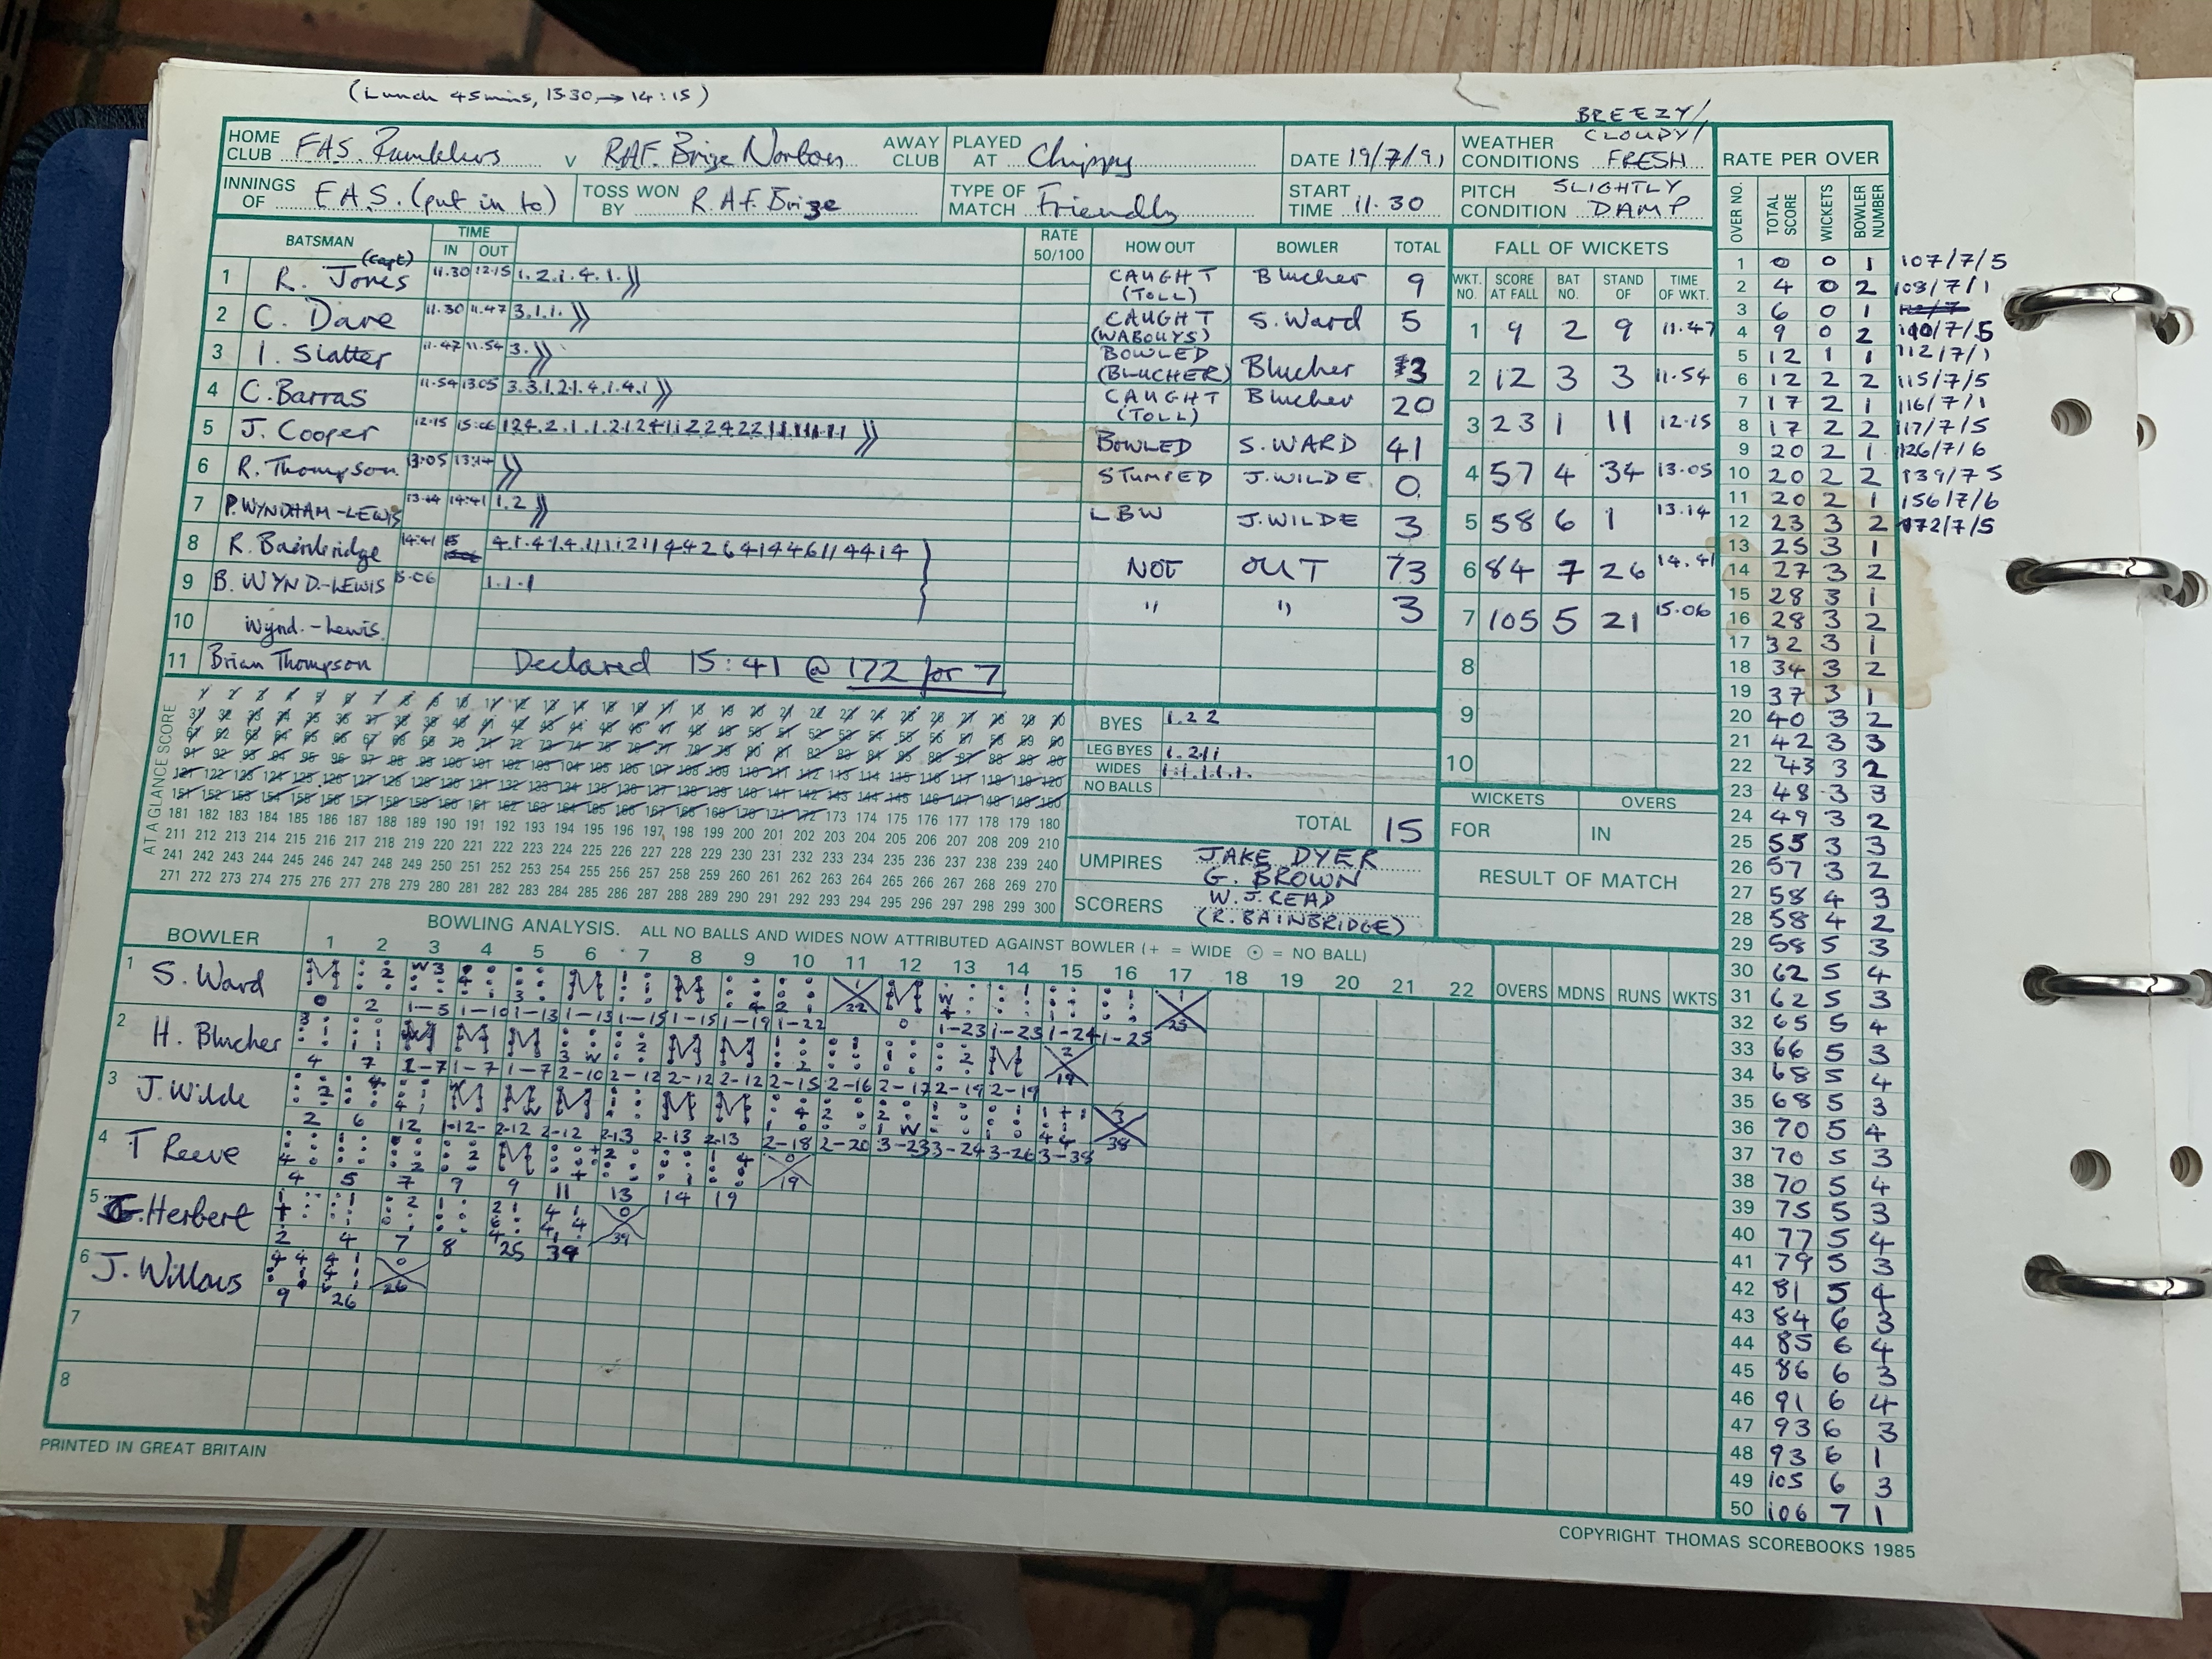 (Lunch 45mins, 13.30 → 14:15)
BREEZY/
HOME CLUB F.A.S. Ramblers v R.A.F. Brize Norton AWAY CLUB
PLAYED AT Chippy
DATE 19/7/91
WEATHER CONDITIONS CLOUDY/ FRESH
INNINGS OF F.A.S. (put in to)
TOSS WON BY R.A.F. Brize
TYPE OF MATCH Friendly
START TIME 11.30
PITCH CONDITION SLIGHTLY DAMP
BATSMAN TIME IN OUT RATE 50/100 HOW OUT BOWLER TOTAL
1 R. Jones (Capt) 11.30 12.15 1.2.1.4.1. CAUGHT (TOLL) Blucher 9
2 C. Dare 11.30 11.47 3.1.1. CAUGHT (WABOUYS) S.Ward 5
3 I. Slatter 11.47 11.54 3. BOWLED (BLUCHER) Blucher 3
4 C. Barras 11.54 13.05 3.3.1.2.1.4.1.4.1 CAUGHT (TOLL) Blucher 20
5 J. Cooper 12.15 15:06 BOWLED S.WARD 41
6 R. Thompson 13:05 13:14 STUMPED J.WILDE 0
7 P. WYNDHAM-LEWIS 13.14 14:41 1.2 LBW J.WILDE 3
8 R. Bainbridge 14:41 NOT OUT 73
9 B. WYND.-LEWIS 15.06 1.1.1 " " 3
10 Wynd.-Lewis
11 Brian Thompson
Declared 15:41 @ 172 for 7
FALL OF WICKETS
WKT. NO. SCORE AT FALL BAT NO. STAND OF TIME OF WKT.
1 9 2 9 11.47
2 12 3 3 11.54
3 23 1 11 12.15
4 57 4 34 13.05
5 58 6 1 13.14
6 84 7 26 14.41
7 105 5 21 15.06
8
9
10
WICKETS OVERS
FOR IN
RESULT OF MATCH
AT A GLANCE SCORE
181 182 183 184 185 186 187 188 189 190 191 192 193 194 195 196 197 198 199 200 201 202 203 204 205 206 207 208 209 210
211 212 213 214 215 216 217 218 219 220 221 222 223 224 225 226 227 228 229 230 231 232 233 234 235 236 237 238 239 240
241 242 243 244 245 246 247 248 249 250 251 252 253 254 255 256 257 258 259 260 261 262 263 264 265 266 267 268 269 270
271 272 273 274 275 276 277 278 279 280 281 282 283 284 285 286 287 288 289 290 291 292 293 294 295 296 297 298 299 300
BYES 1.2 2
LEG BYES 1.2 1 1
WIDES 1.1.1.1.1.
NO BALLS
TOTAL 15
UMPIRES JAKE DYER
G. BROWN
SCORERS W.J. READ
(R. BAINBRIDGE)
BOWLER BOWLING ANALYSIS. ALL NO BALLS AND WIDES NOW ATTRIBUTED AGAINST BOWLER (+ = WIDE ⊙ = NO BALL)
1 2 3 4 5 6 7 8 9 10 11 12 13 14 15 16 17 18 19 20 21 22 OVERS MDNS RUNS WKTS
1 S. Ward
0 2 1-5 1-10 1-13 1-13 1-15 1-15 1-19 1-22 22 0 1-23 1-23 1-24 1-25 25
2 H. Blucher
4 7 1-7 1-7 1-7 2-10 2-12 2-12 2-12 2-15 2-16 2-17 2-19 2-19 19
3 J. Wilde
2 6 12 1-12 2-12 2-12 2-13 2-13 2-13 2-18 2-20 3-23 3-24 3-26 3-38 38
4 T Reeve
4 5 7 9 9 11 13 14 19 19
5 G. Herbert
2 4 7 8 25 39 39
6 J. Willows
9 26 26
7
8
PRINTED IN GREAT BRITAIN
RATE PER OVER
OVER NO. TOTAL SCORE WICKETS BOWLER NUMBER
1 0 0 1 107/7/5
2 4 0 2 108/7/1
3 6 0 1
4 9 0 2 110/7/5
5 12 1 1 112/7/1
6 12 2 2 115/7/5
7 17 2 1 116/7/1
8 17 2 2 117/7/5
9 20 2 1 126/7/6
10 20 2 2 139/7 5
11 20 2 1 156/7/6
12 23 3 2 172/7/5
13 25 3 1
14 27 3 2
15 28 3 1
16 28 3 2
17 32 3 1
18 34 3 2
19 37 3 1
20 40 3 2
21 42 3 3
22 43 3 2
23 48 3 3
24 49 3 2
25 55 3 3
26 57 3 2
27 58 4 3
28 58 4 2
29 58 5 3
30 62 5 4
31 62 5 3
32 65 5 4
33 66 5 3
34 68 5 4
35 68 5 3
36 70 5 4
37 70 5 3
38 70 5 4
39 75 5 3
40 77 5 4
41 79 5 3
42 81 5 4
43 84 6 3
44 85 6 4
45 86 6 3
46 91 6 4
47 93 6 3
48 93 6 1
49 105 6 3
50 106 7 1
COPYRIGHT THOMAS SCOREBOOKS 1985